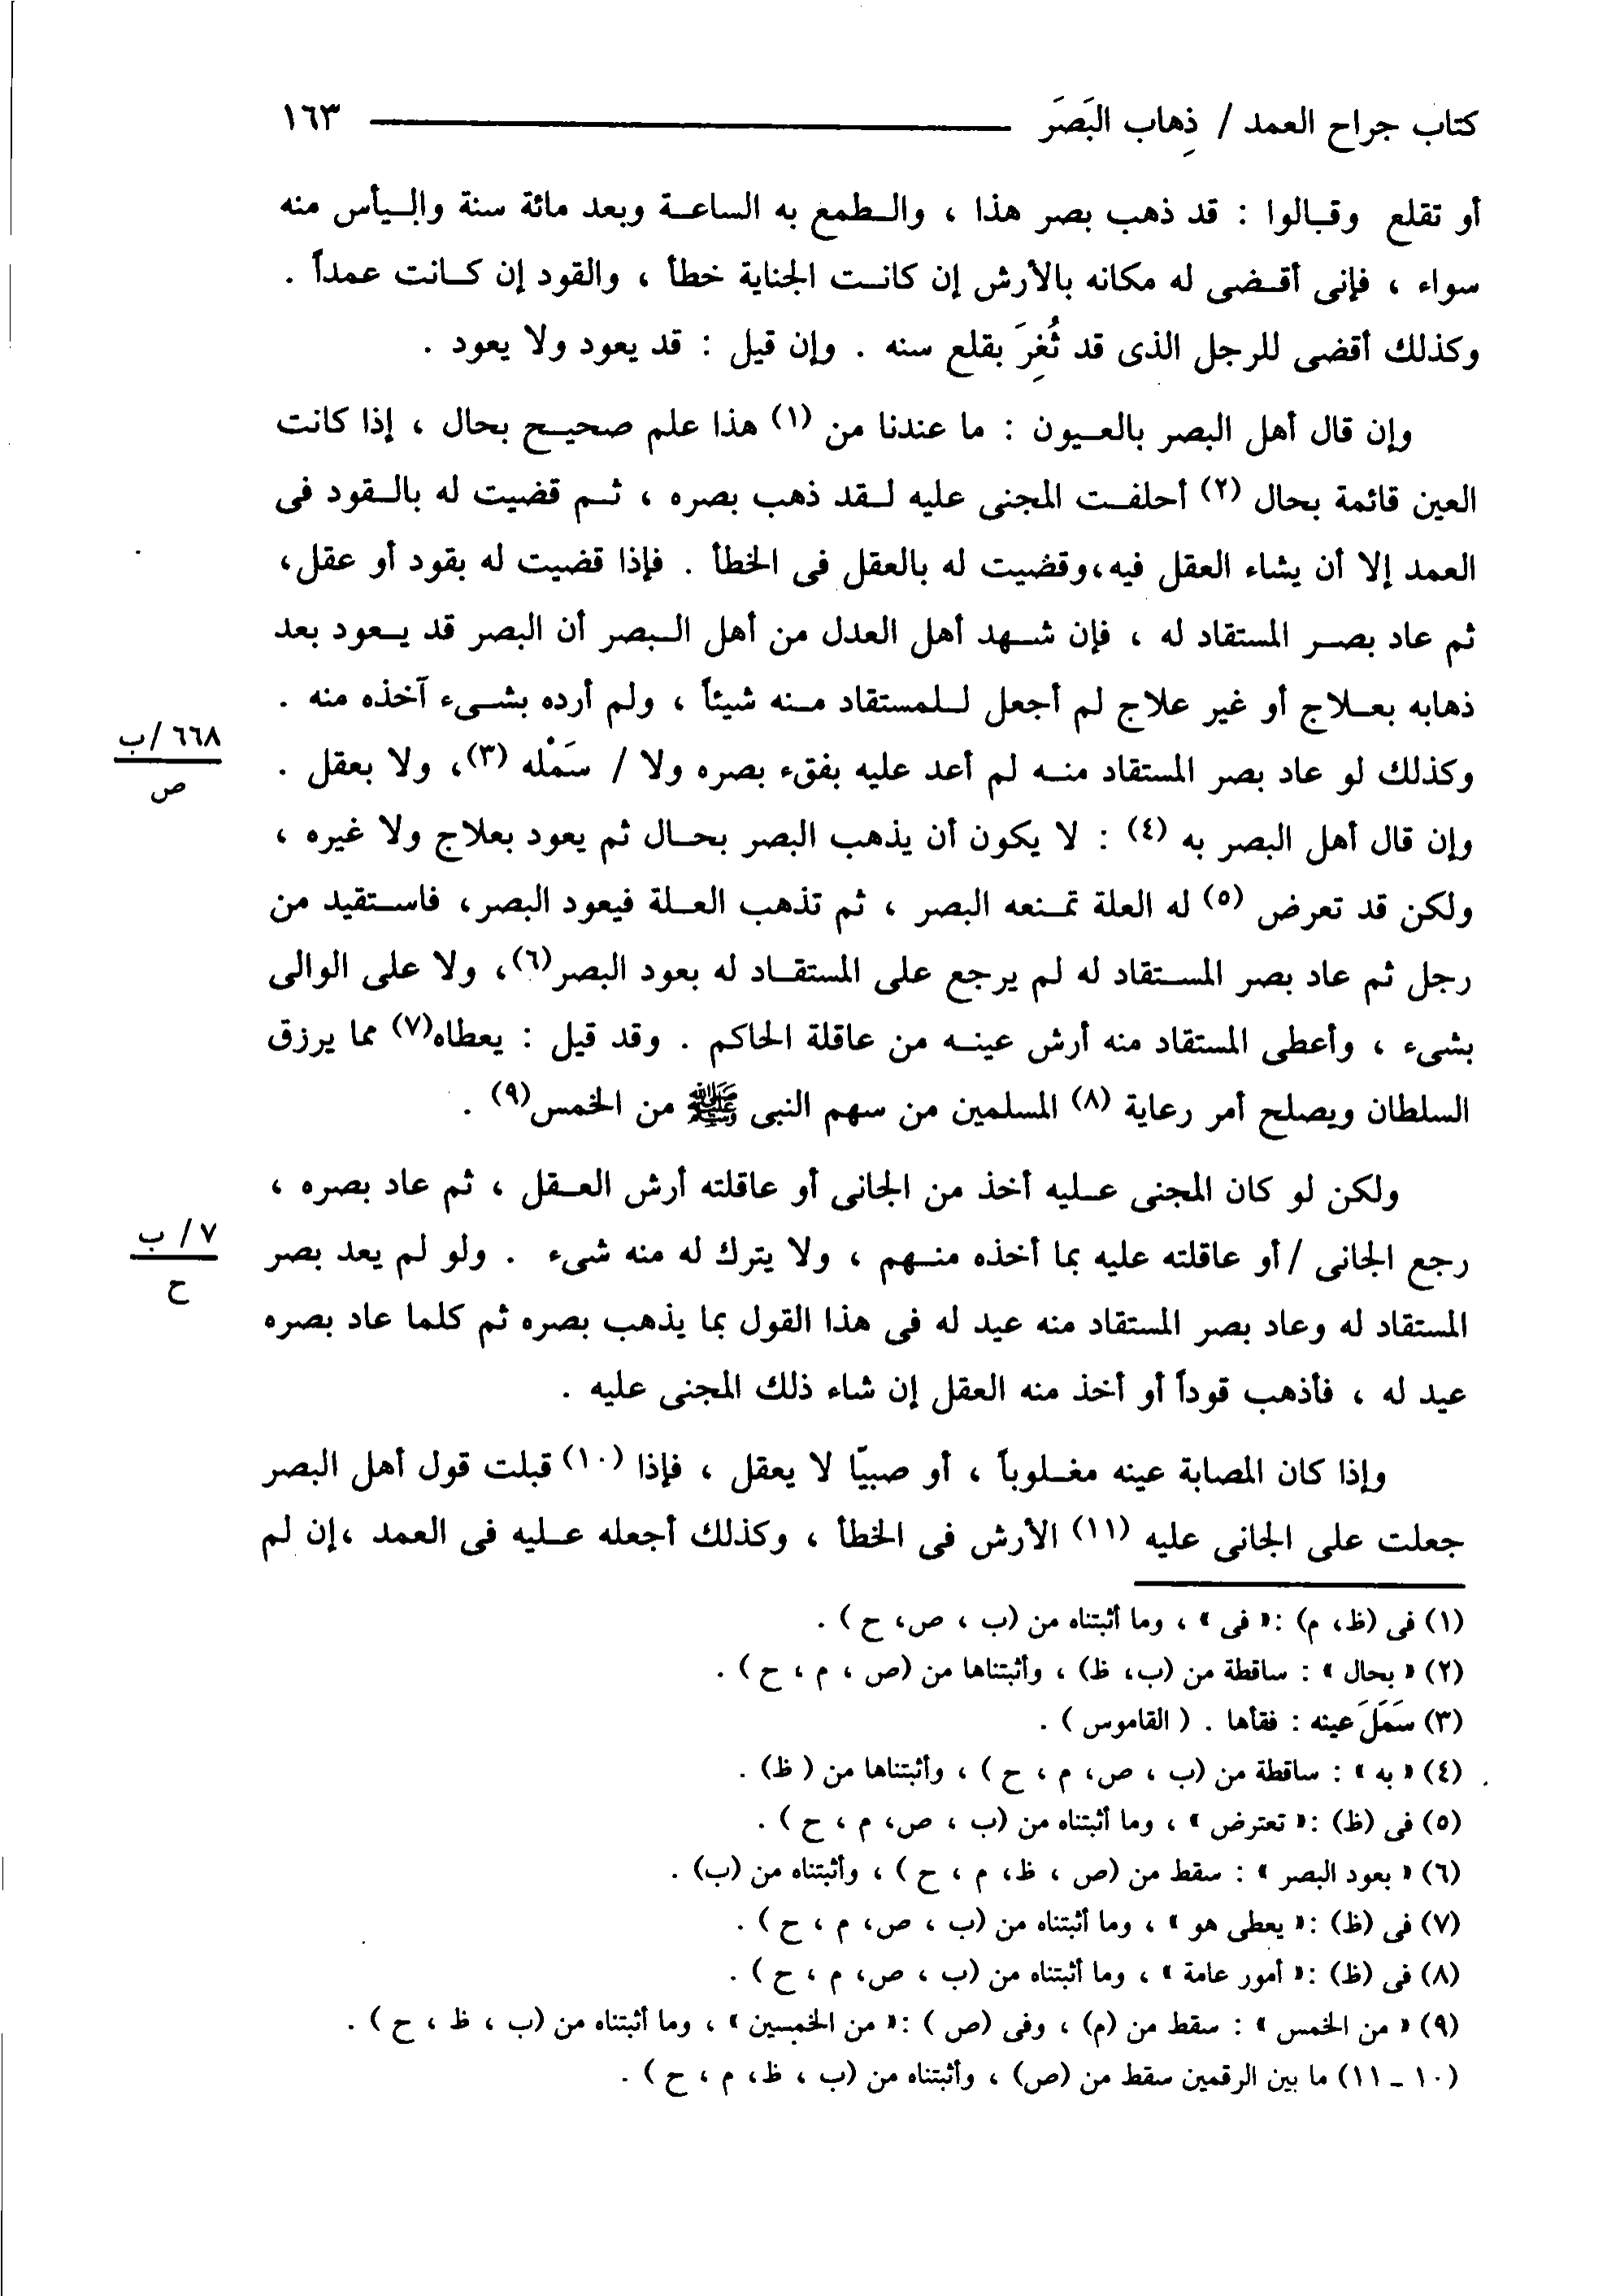 كتاب جراح العمد / ذِهاب البَصَر ١٦٣
أو تقلع وقالوا : قد ذهب بصر هذا ، والطمع به الساعة وبعد مائة سنة واليأس منه
سواء ، فإنى أقضى له مكانه بالأرش إن كانت الجناية خطأ ، والقود إن كانت عمداً .
وكذلك أقضى للرجل الذى قد ثُغِرَ بقلع سنه . وإن قيل : قد يعود ولا يعود .
وإن قال أهل البصر بالعيون : ما عندنا من (١) هذا علم صحيح بحال ، إذا كانت
العين قائمة بحال (٢) أحلفت المجنى عليه لقد ذهب بصره ، ثم قضيت له بالقود فى
العمد إلا أن يشاء العقل فيه،وقضيت له بالعقل فى الخطأ . فإذا قضيت له بقود أو عقل،
ثم عاد بصر المستقاد له ، فإن شهد أهل العدل من أهل البصر أن البصر قد يعود بعد
ذهابه بعلاج أو غير علاج لم أجعل للمستقاد منه شيئاً ، ولم أرده بشىء آخذه منه .
وكذلك لو عاد بصر المستقاد منه لم أعد عليه بفقء بصره ولا / سَمْله (٣)، ولا بعقل .
٦٦٨/ب
ص
وإن قال أهل البصر به (٤) : لا يكون أن يذهب البصر بحال ثم يعود بعلاج ولا غيره ،
ولكن قد تعرض (٥) له العلة تمنعه البصر ، ثم تذهب العلة فيعود البصر، فاستقيد من
رجل ثم عاد بصر المستقاد له لم يرجع على المستقاد له بعود البصر(٦)، ولا على الوالى
بشىء ، وأعطى المستقاد منه أرش عينه من عاقلة الحاكم . وقد قيل : يعطاه(٧) مما يرزق
السلطان ويصلح أمر رعاية (٨) المسلمين من سهم النبى ﷺ من الخمس(٩) .
ولكن لو كان المجنى عليه أخذ من الجانى أو عاقلته أرش العقل ، ثم عاد بصره ،
رجع الجانى /أو عاقلته عليه بما أخذه منهم ، ولا يترك له منه شىء . ولو لم يعد بصر
٧/ب
ح
المستقاد له وعاد بصر المستقاد منه عيد له فى هذا القول بما يذهب بصره ثم كلما عاد بصره
عيد له ، فأذهب قوداً أو أخذ منه العقل إن شاء ذلك المجنى عليه .
وإذا كان المصابة عينه مغلوباً ، أو صبيّا لا يعقل ، فإذا (١٠) قبلت قول أهل البصر
جعلت على الجانى عليه (١١) الأرش فى الخطأ ، وكذلك أجعله عليه فى العمد ،إن لم
(١) فى (ظ، م) :« فى » ، وما أثبتناه من (ب ، ص، ح ) .
(٢) « بحال » : ساقطة من (ب، ظ) ، وأثبتناها من (ص ، م ، ح ) .
(٣) سَمَلَ عينه : فقأها . ( القاموس ) .
(٤) « به » : ساقطة من (ب ، ص، م ، ح ) ، وأثبتناها من ( ظ) .
(٥) فى (ظ) :« تعترض » ، وما أثبتناه من (ب ، ص، م ، ح ) .
(٦) « بعود البصر » : سقط من (ص ، ظ، م ، ح ) ، وأثبتناه من (ب) .
(٧) فى (ظ) :« يعطى هو » ، وما أثبتناه من (ب ، ص، م ، ح ) .
(٨) فى (ظ) :« أمور عامة » ، وما أثبتناه من (ب ، ص، م ، ح ) .
(٩) « من الخمس » : سقط من (م) ، وفى (ص ) :« من الخمسين » ، وما أثبتناه من (ب ، ظ ، ح ) .
(١٠ ـ ١١) ما بين الرقمين سقط من (ص) ، وأثبتناه من (ب ، ظ، م ، ح ) .